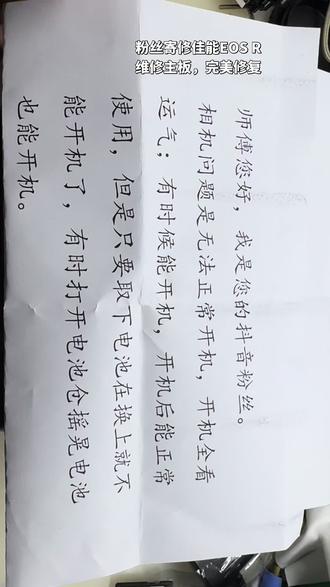 粉丝寄修佳能EOS R
维修主板，完美修复
师傅您好，我是您的抖音粉丝。
相机问题是无法正常开机，开机全看
运气；有时候能开机，开机后能正常
使用，但是只要取下电池在换上就不
能开机了，有时打开电池仓摇晃电池
也能开机。